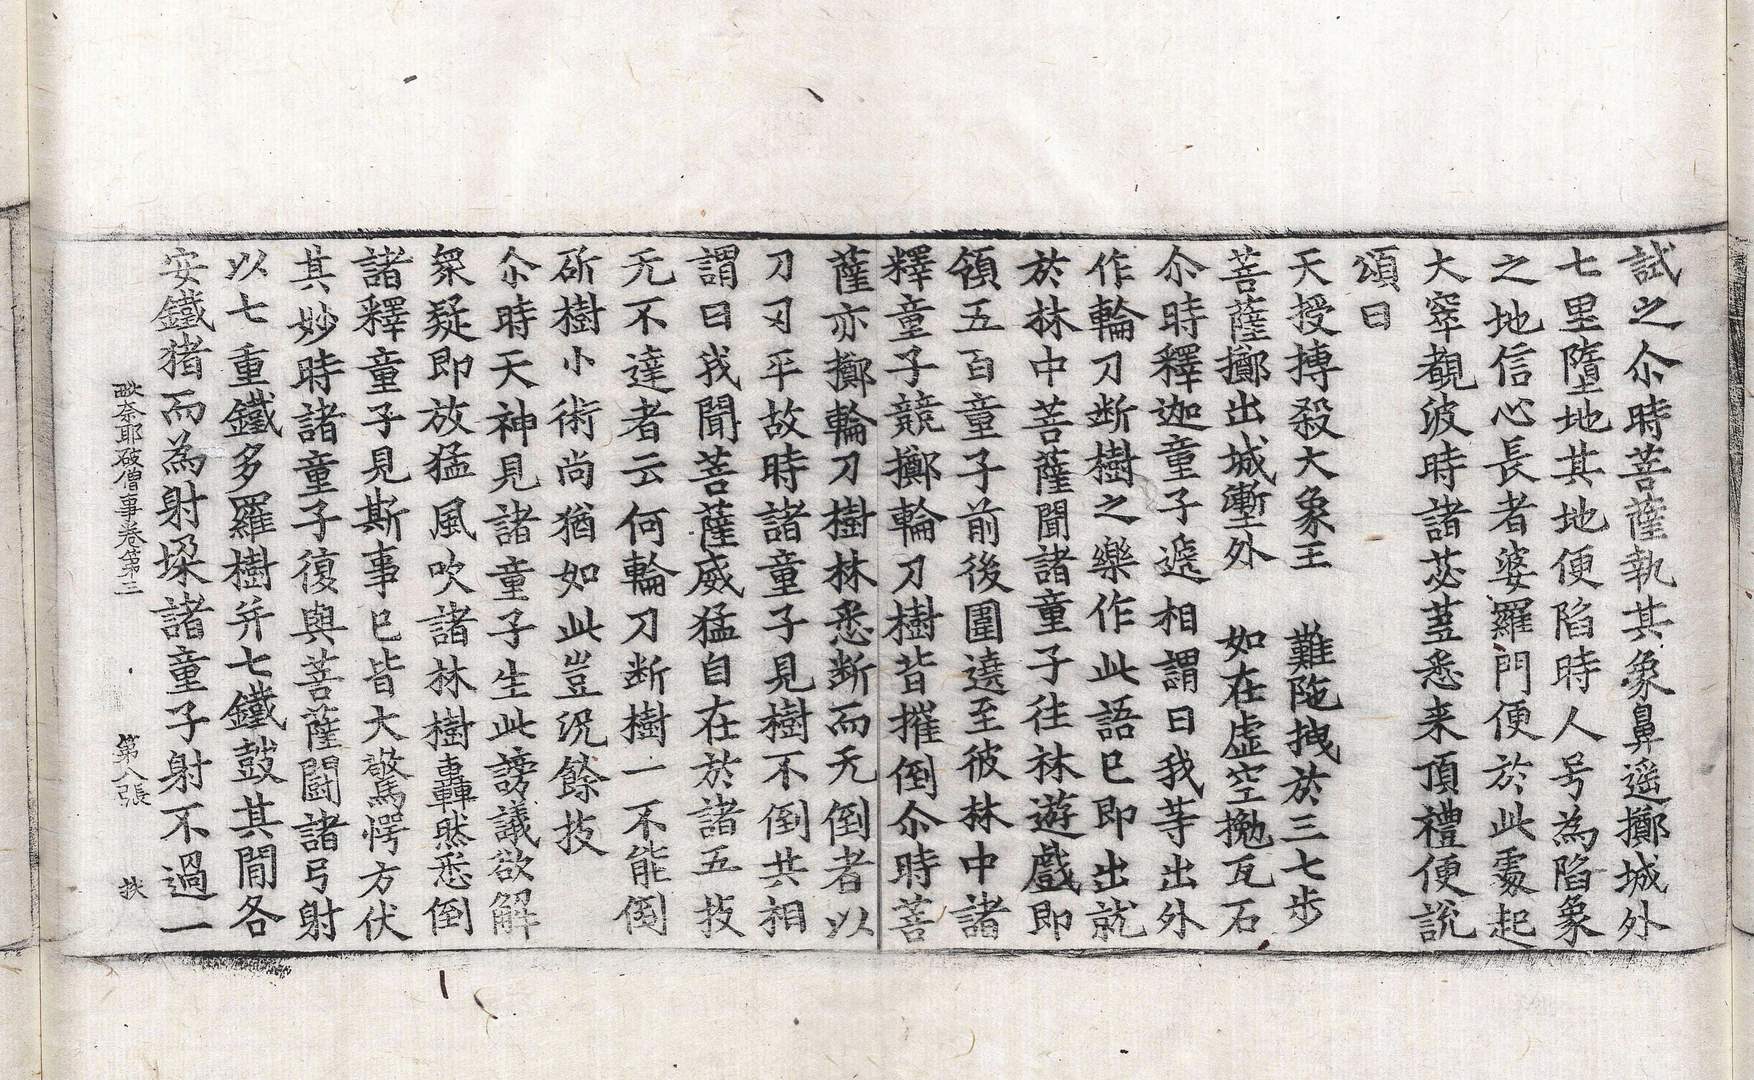 試之尒時菩薩執其象鼻遥擲城外
七里墮地其地便陷時人号為陷象
之地信心長者婆羅門便於此處起
大窣覩波時諸苾蒭悉来頂禮便説
頌曰
天授搏殺大象王　難陁拽於三七步
菩薩擲出城壍外　如在虚空擲瓦石
尒時釋迦童子遞相謂曰我等出外
作輪刀断樹之樂作此語巳即出就
於林中菩薩聞諸童子往林遊戲即
領五百童子前後圍遶至彼林中諸
釋童子競擲輪刀樹皆摧倒尒時菩
薩亦擲輪刀樹林悉断而无倒者以
刀刃平故時諸童子見樹不倒共相
謂曰我聞菩薩威猛自在於諸五技
无不達者云何輪刀断樹一不能倒
斫樹小術尚猶如此豈況餘技
尒時天神見諸童子生此謗議欲解
衆疑即放猛風吹諸林樹轟然悉倒
諸釋童子見斯事巳皆大驚愕方伏
其妙時諸童子復與菩薩鬪諸弓射
以七重鐵多羅樹并七鐵鼓其閒各
安鐵猪而為射垛諸童子射不過一
奈耶破僧事卷第三　第八張